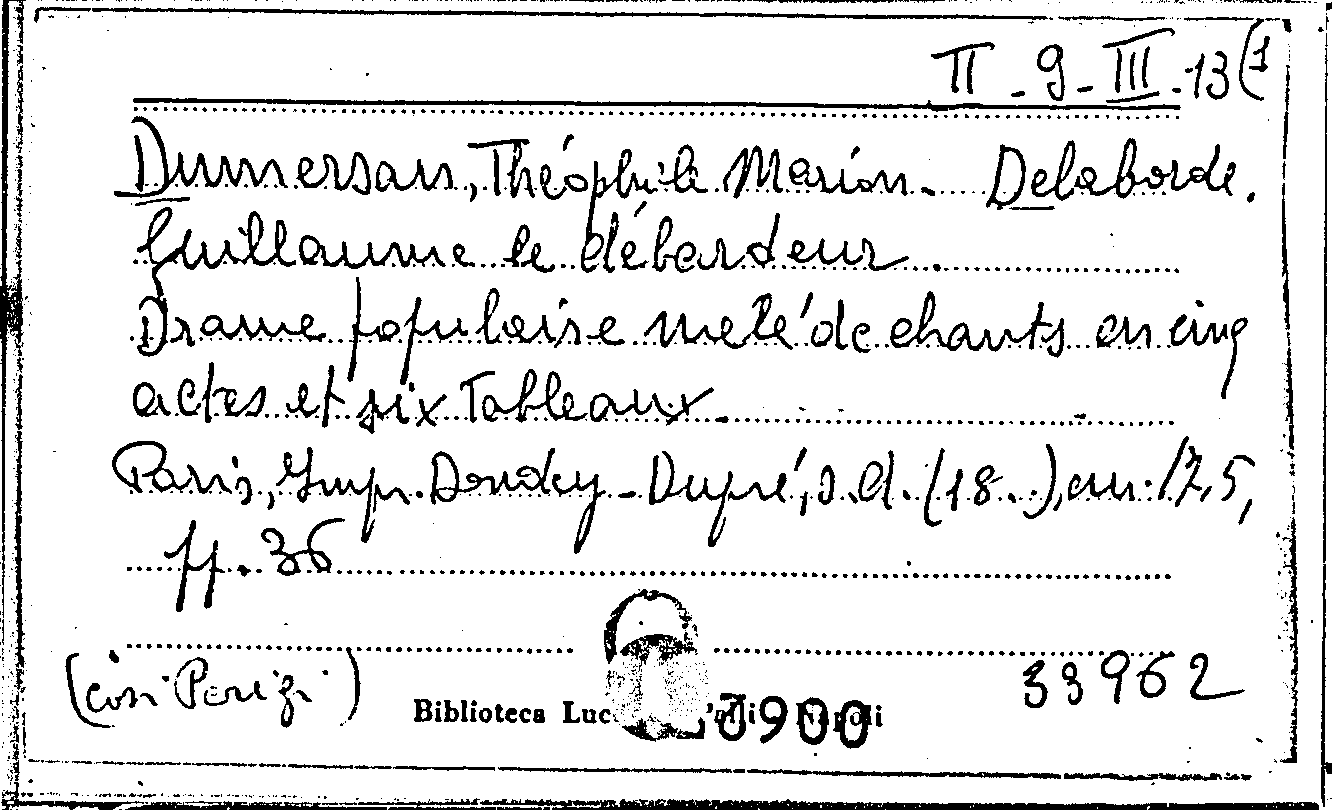 II - 9 - III - 13 (1
Dumersan, Théophile Marion. Delaborde.
Guillaume le débardeur.
Drame populaire melé de chants en cinq
actes et six Tableaux.
Paris, Impr. Dondey-Dupré, s.d. (18..), cm. 17,5,
pp. 36
(così Parigi)
33962
Biblioteca Luc Napoli
3900